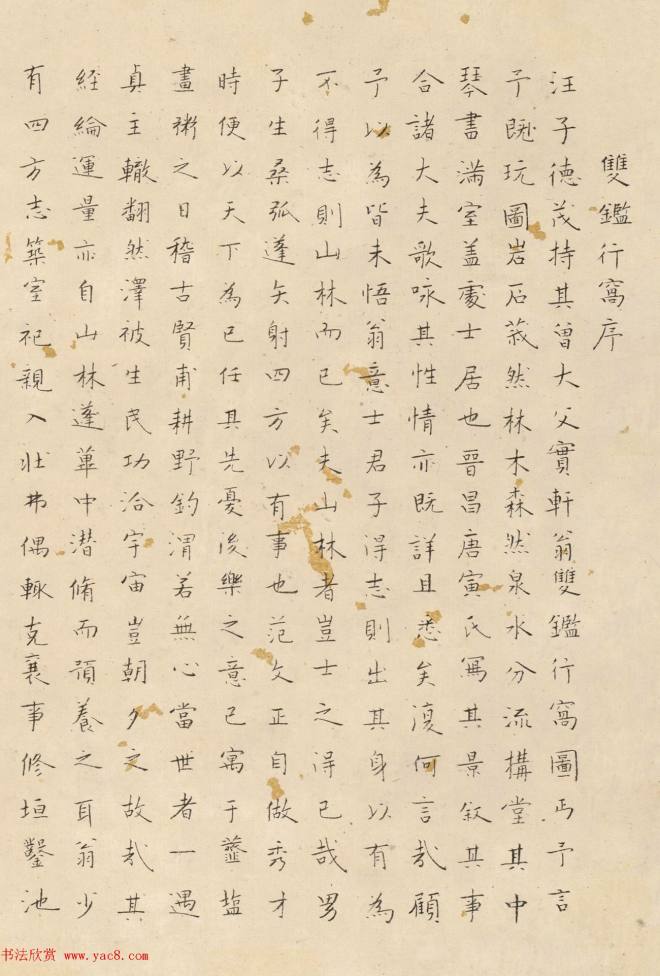 雙鑑行窩序
汪子德茂持其曾大父實軒翁雙鑑行窩圖丐予言
予既玩圖岩石峩然林木森然泉水分流構堂其中
琴書滿室盖處士居也晉昌唐寅氏寫其景敘其事
合諸大夫歌咏其性情亦既詳且悉矣復何言哉顧
予以為皆未悟翁意士君子得志則出其身以有為
不得志則山林而已矣夫山林者豈士之得已哉男
子生桑弧蓬矢射四方以有事也范文正自做秀才
時便以天下為己任其先憂後樂之意已寓于虀塩
畫粥之日稽古賢甫耕野釣渭若無心當世者一遇
貞主轍翻然澤被生民功洽宇宙豈朝夕之故哉其
經綸運量亦自山林蓬蓽中潜脩而預養之耳翁少
有四方志築室祀親入壯弗偶輒克襄事修垣鑿池
书法欣赏 www.yac8.com